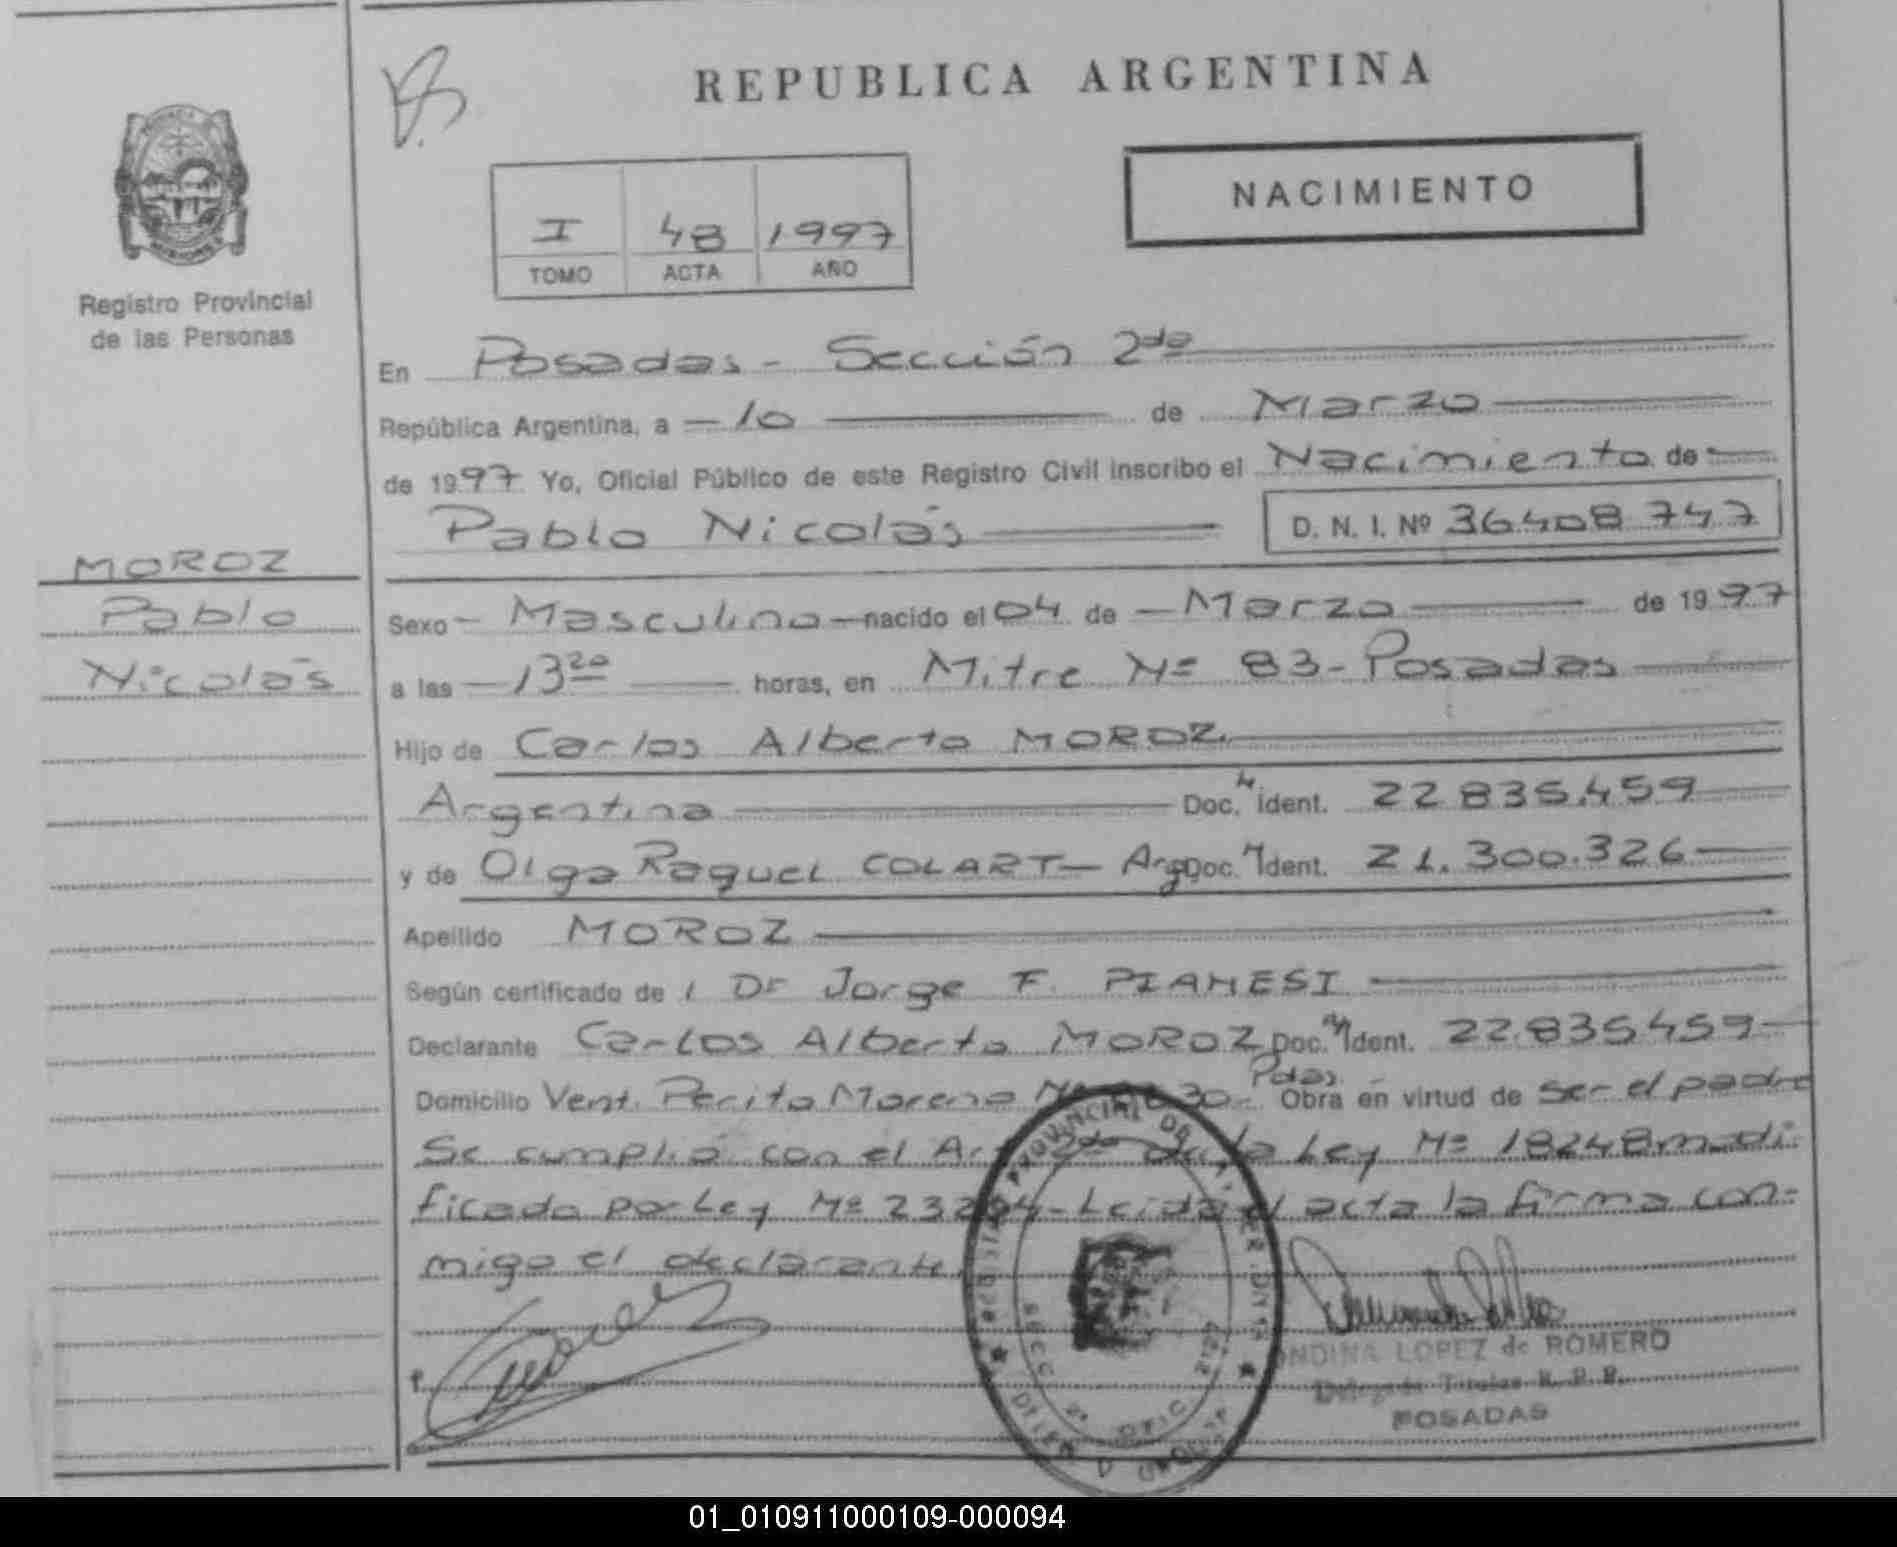 REPUBLICA ARGENTINA
NACIMIENTO
I 48 1997
TOMO ACTA AÑO
Registro Provincial
de las Personas
En Posadas - Sección 2da
República Argentina, a - 10 de Marzo
de 1997 Yo, Oficial Público de este Registro Civil inscribo el Nacimiento de
Pablo Nicolás D. N. I. Nº 36408747
MOROZ
Pablo
Nicolás
Sexo - Masculino - nacido el 04 de - Marzo de 1997
a las - 13 20 horas, en Mitre Nº 83 - Posadas
Hijo de Carlos Alberto MOROZ
Argentina Doc. Ident. 22835.459
y de Olga Raquel COLART - Arg Doc. Ident. 21.300.326
Apellido MOROZ
Según certificado de Dr Jorge F. PIANESI
Declarante Carlos Alberto MOROZ Doc. Ident. 22.835459
Domicilio Vent. Perito Moreno Nº Pdas. Obra en virtud de ser el padre
Se cumplió con el Art 2do de la Ley Nº 18248 modi
ficado por Ley Nº 23264 - Leida el acta la firma con-
migo el declarante.
ONDINA LOPEZ de ROMERO
Delegada Titular R. P. P.
POSADAS
REGISTRO PROVINCIAL DE LAS PERSONAS
01_010911000109-000094